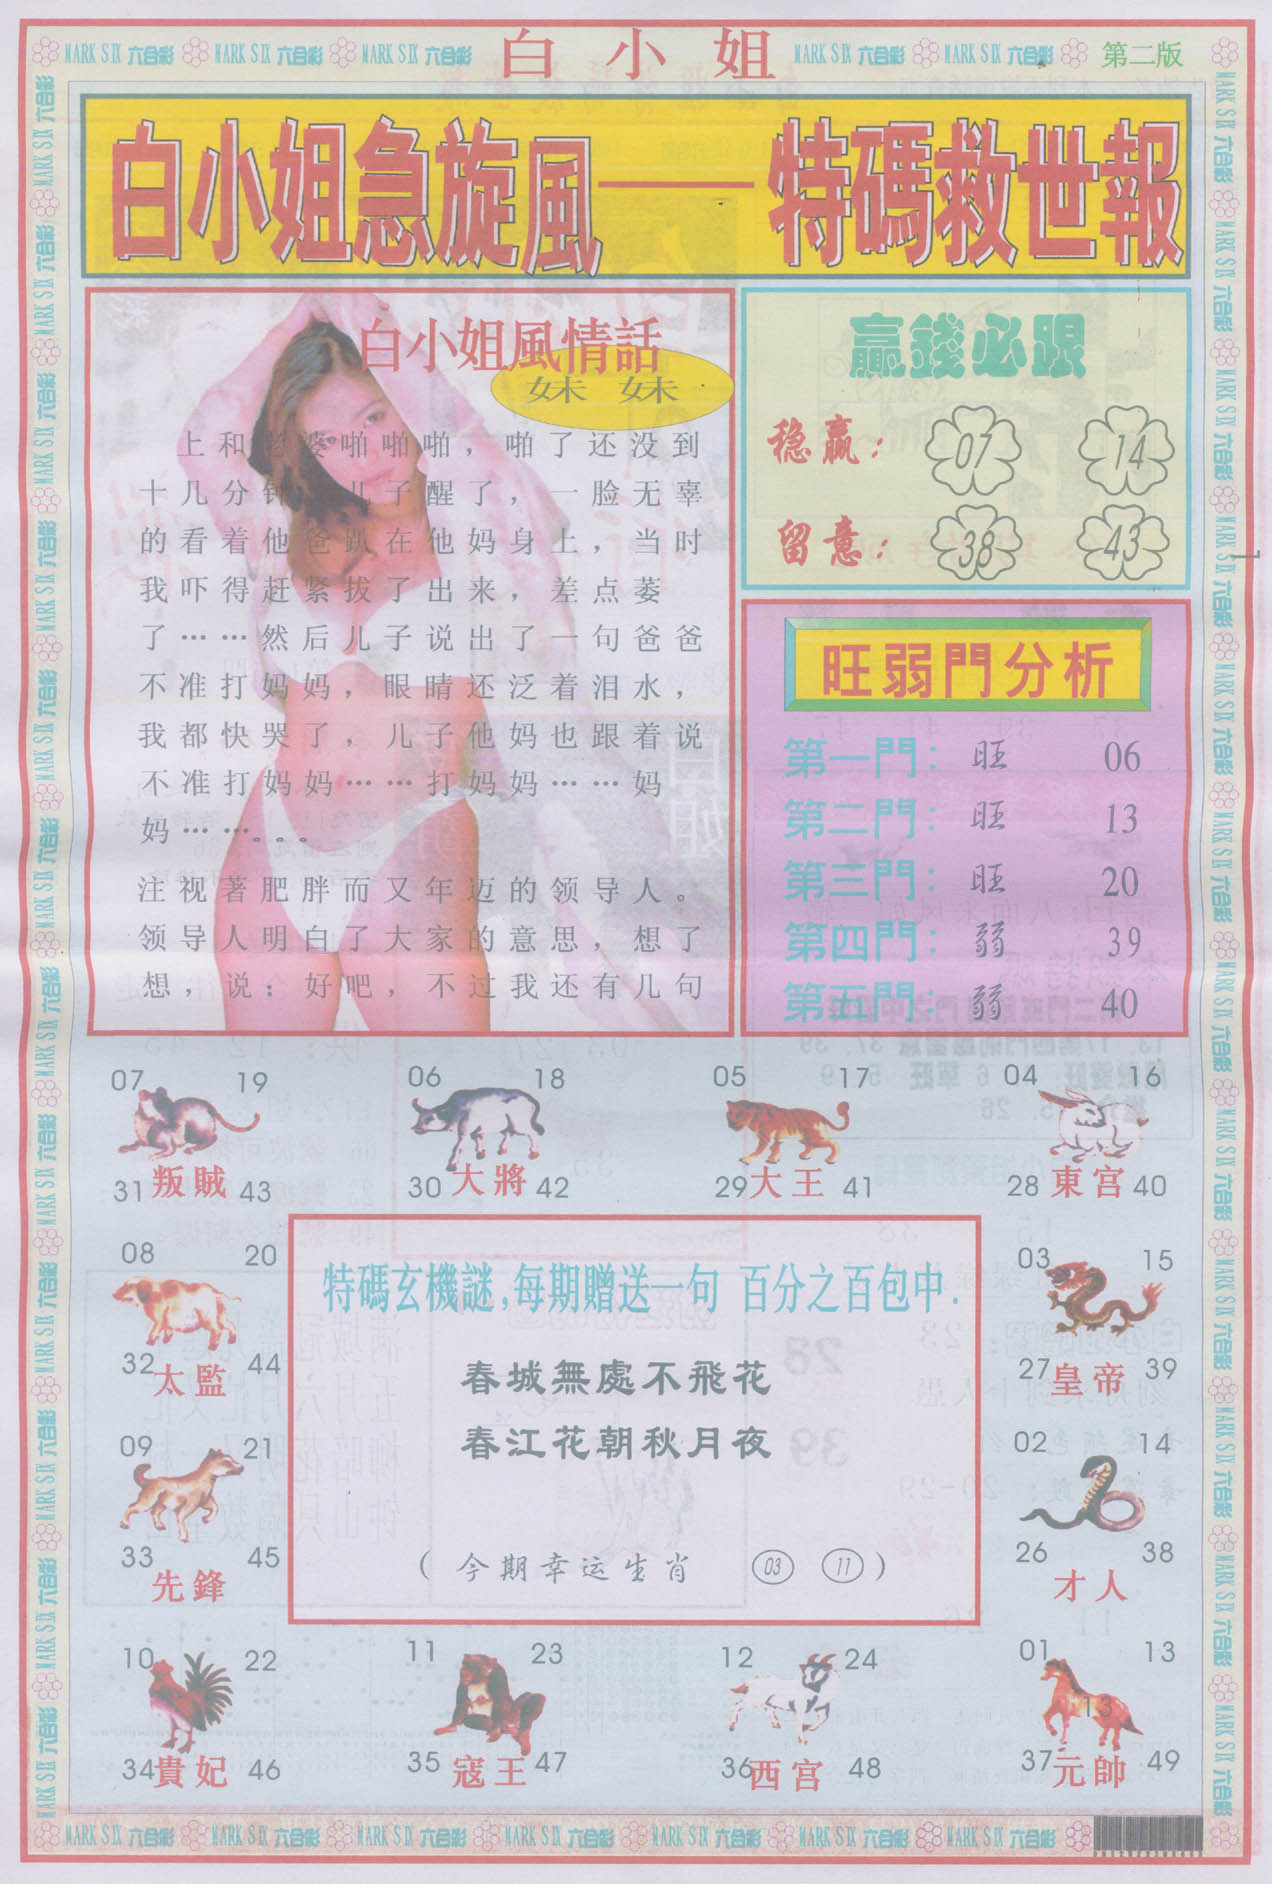 MARK SIX 六合彩 MARK SIX 六合彩 MARK SIX 六合彩 白小姐 MARK SIX 六合彩 MARK SIX 六合彩 第二版
白小姐急旋風——特碼救世報
白小姐風情話
妹 妹
上和老婆啪啪啪，啪了还没到
十几分钟，儿子醒了，一脸无辜
的看着他爸趴在他妈身上，当时
我吓得赶紧拔了出来，差点萎
了……然后儿子说出了一句爸爸
不准打妈妈，眼睛还泛着泪水，
我都快哭了，儿子他妈也跟着说
不准打妈妈……打妈妈……妈
妈……。。
注视著肥胖而又年迈的领导人。
领导人明白了大家的意思，想了
想，说：好吧，不过我还有几句
贏錢必跟
稳赢： 07 14
留意： 38 43
旺弱門分析
第一門：旺 06
第二門：旺 13
第三門：旺 20
第四門：弱 39
第五門：弱 40
07 19
31 叛賊 43
06 18
30 大將 42
05 17
29 大王 41
04 16
28 東宫 40
08 20
32 太監 44
03 15
27 皇帝 39
特碼玄機謎,每期贈送一句 百分之百包中.
春城無處不飛花
春江花朝秋月夜
（今期幸运生肖 03 11）
09 21
33 先鋒 45
02 14
26 才人 38
10 22
34 貴妃 46
11 23
35 寇王 47
12 24
36 西宫 48
01 13
13
37 元帥 49
MARK SIX 六合彩 MARK SIX 六合彩 MARK SIX 六合彩 MARK SIX 六合彩 MARK SIX 六合彩 MARK SIX 六合彩 MARK SIX 六合彩